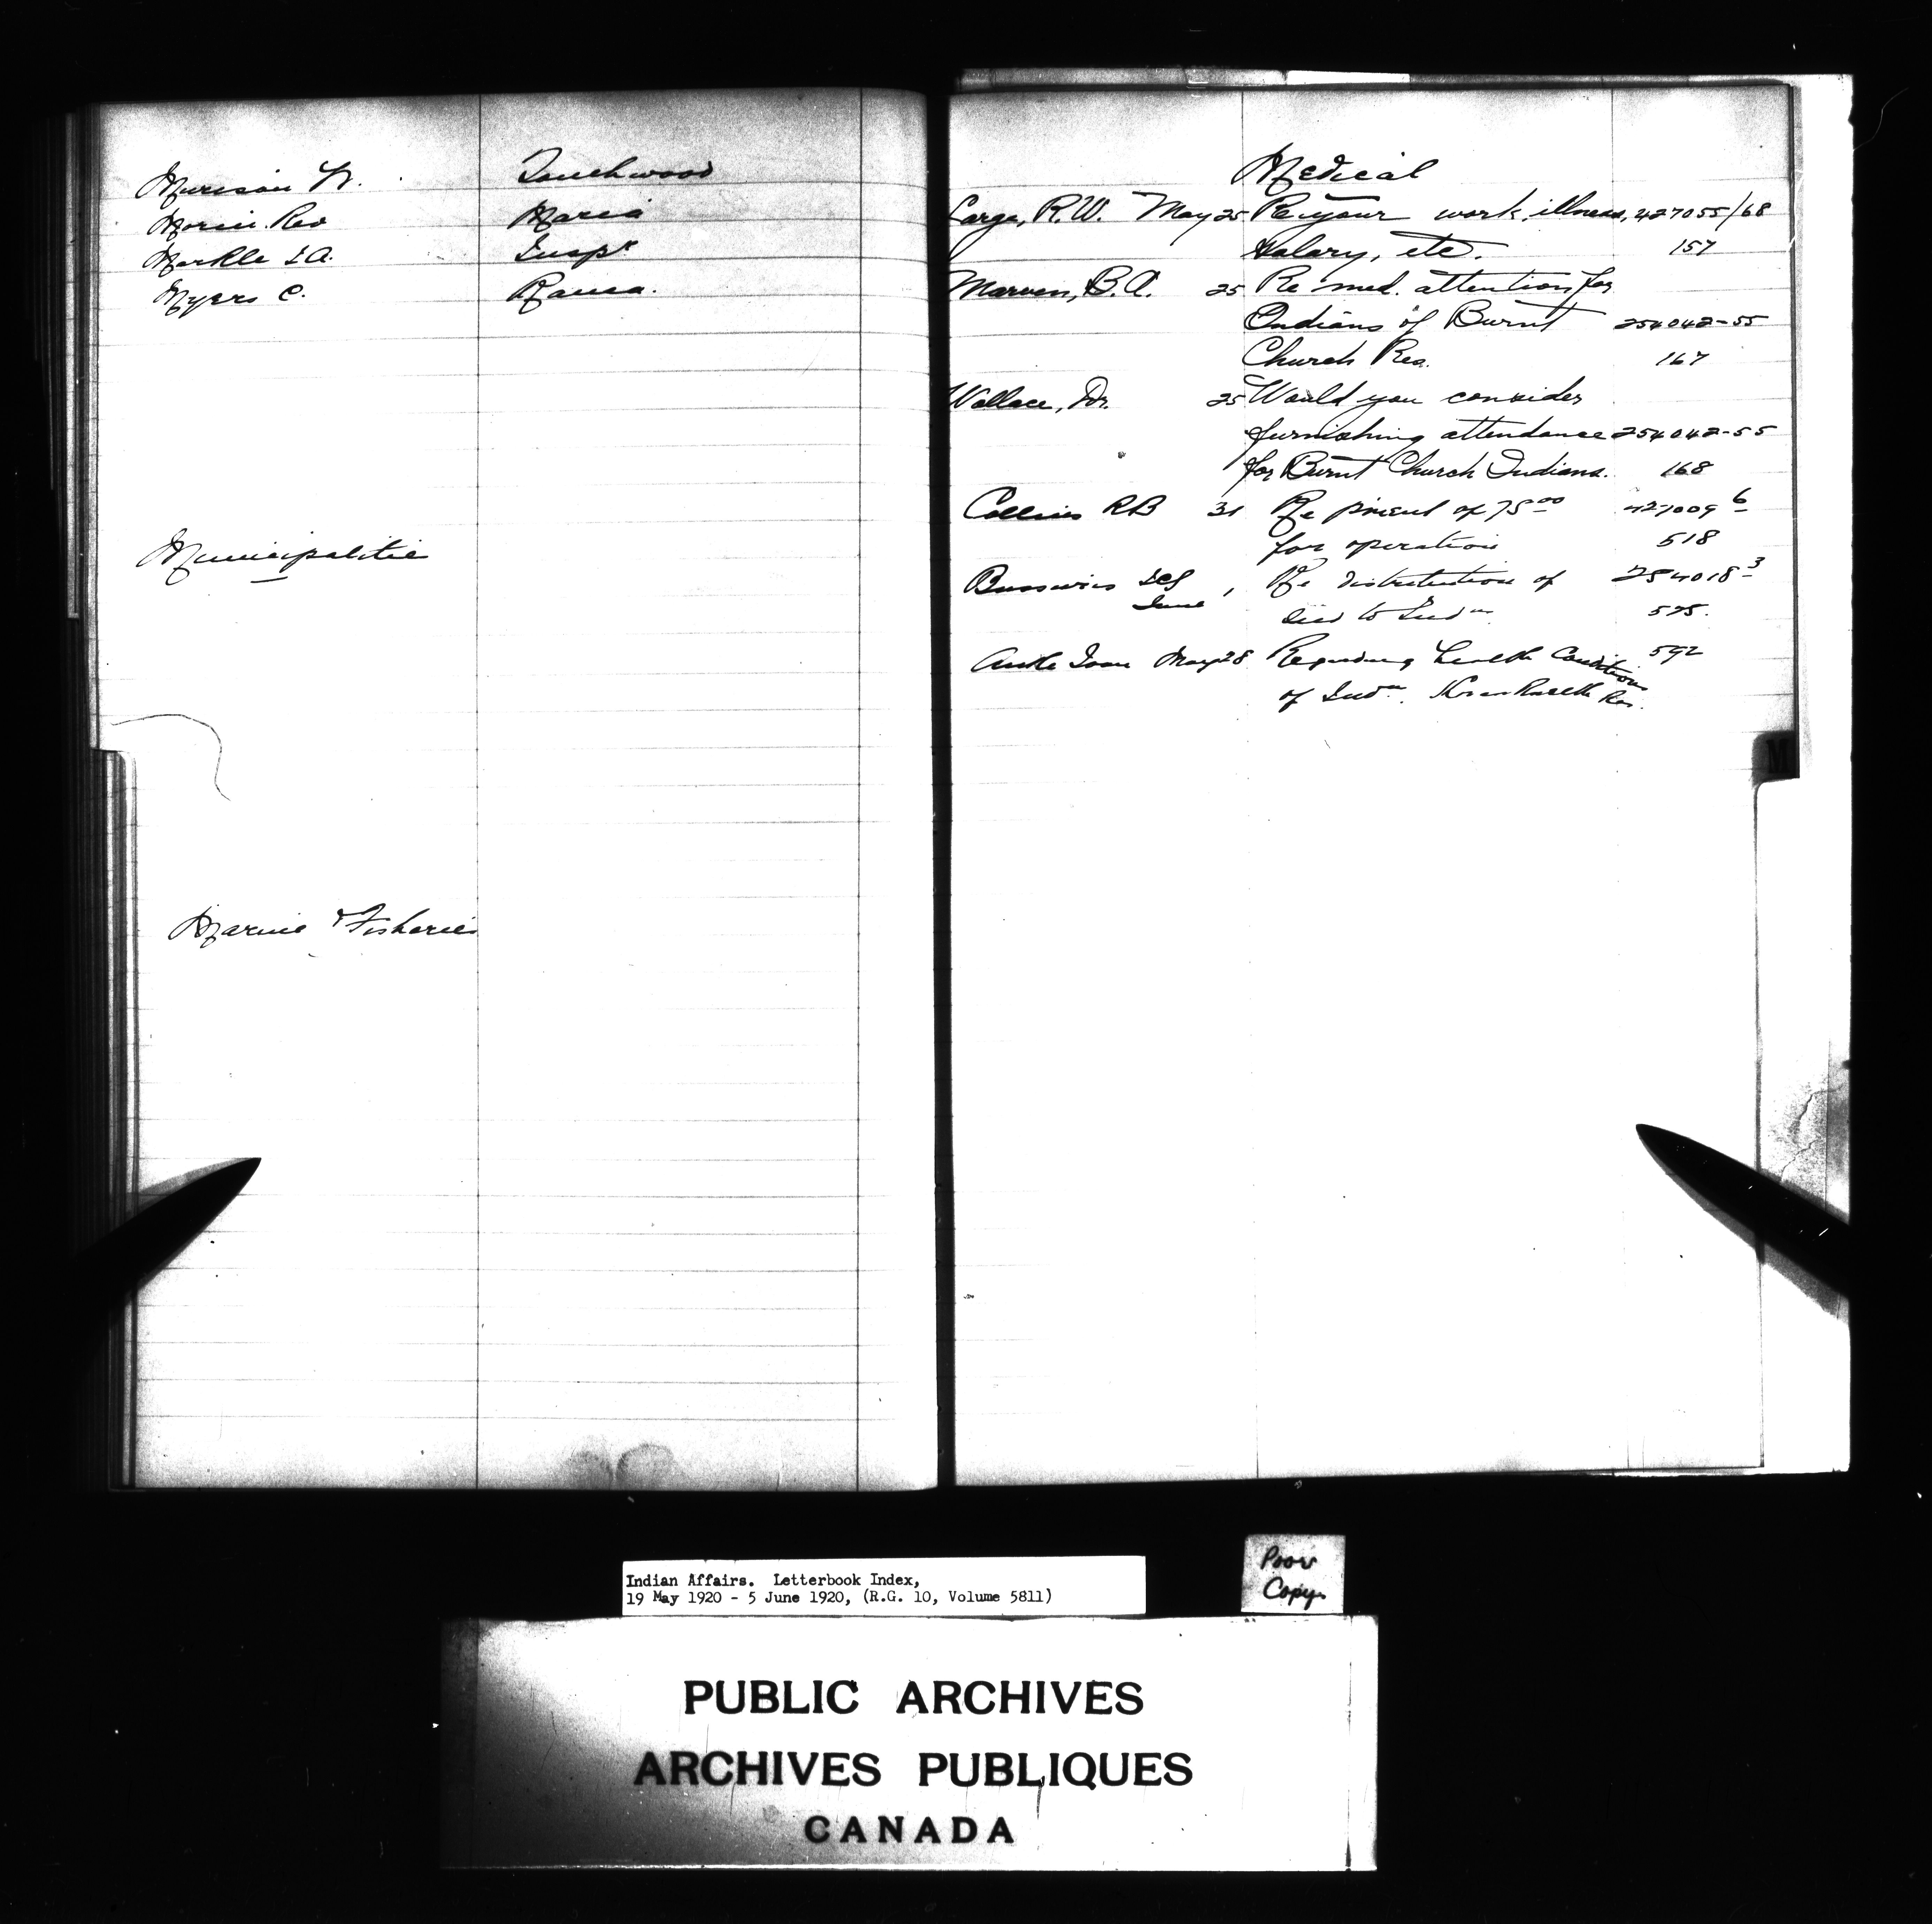 Murison W. Touchwood
Morin Rev Maria
Markle J.A. Insp^r
Myers C. Rama.
Municipalitie
Marine & Fisheries
Medical
Large, R.W. May 25 Re your work, illness, 427055/68
Salary, etc. 157
Marven, B.A. 25 Re med. attention for
Indians of Burnt 254042-55
Church Res. 167
Wallace, Dr. 25 Would you consider
furnishing attendance 254042-55
for Burnt Church Indians. 168
Collins RB 31 Re of 75 00 427009 6
for operation 518
June 1 Re distribution of 254018 3
to Ind^ns 575.
May 28 Regarding health Conditions 592
of Ind^ns. Res.
M
Indian Affairs. Letterbook Index,
19 May 1920 - 5 June 1920, (R.G. 10, Volume 5811)
Poor
Copy
PUBLIC ARCHIVES
ARCHIVES PUBLIQUES
CANADA